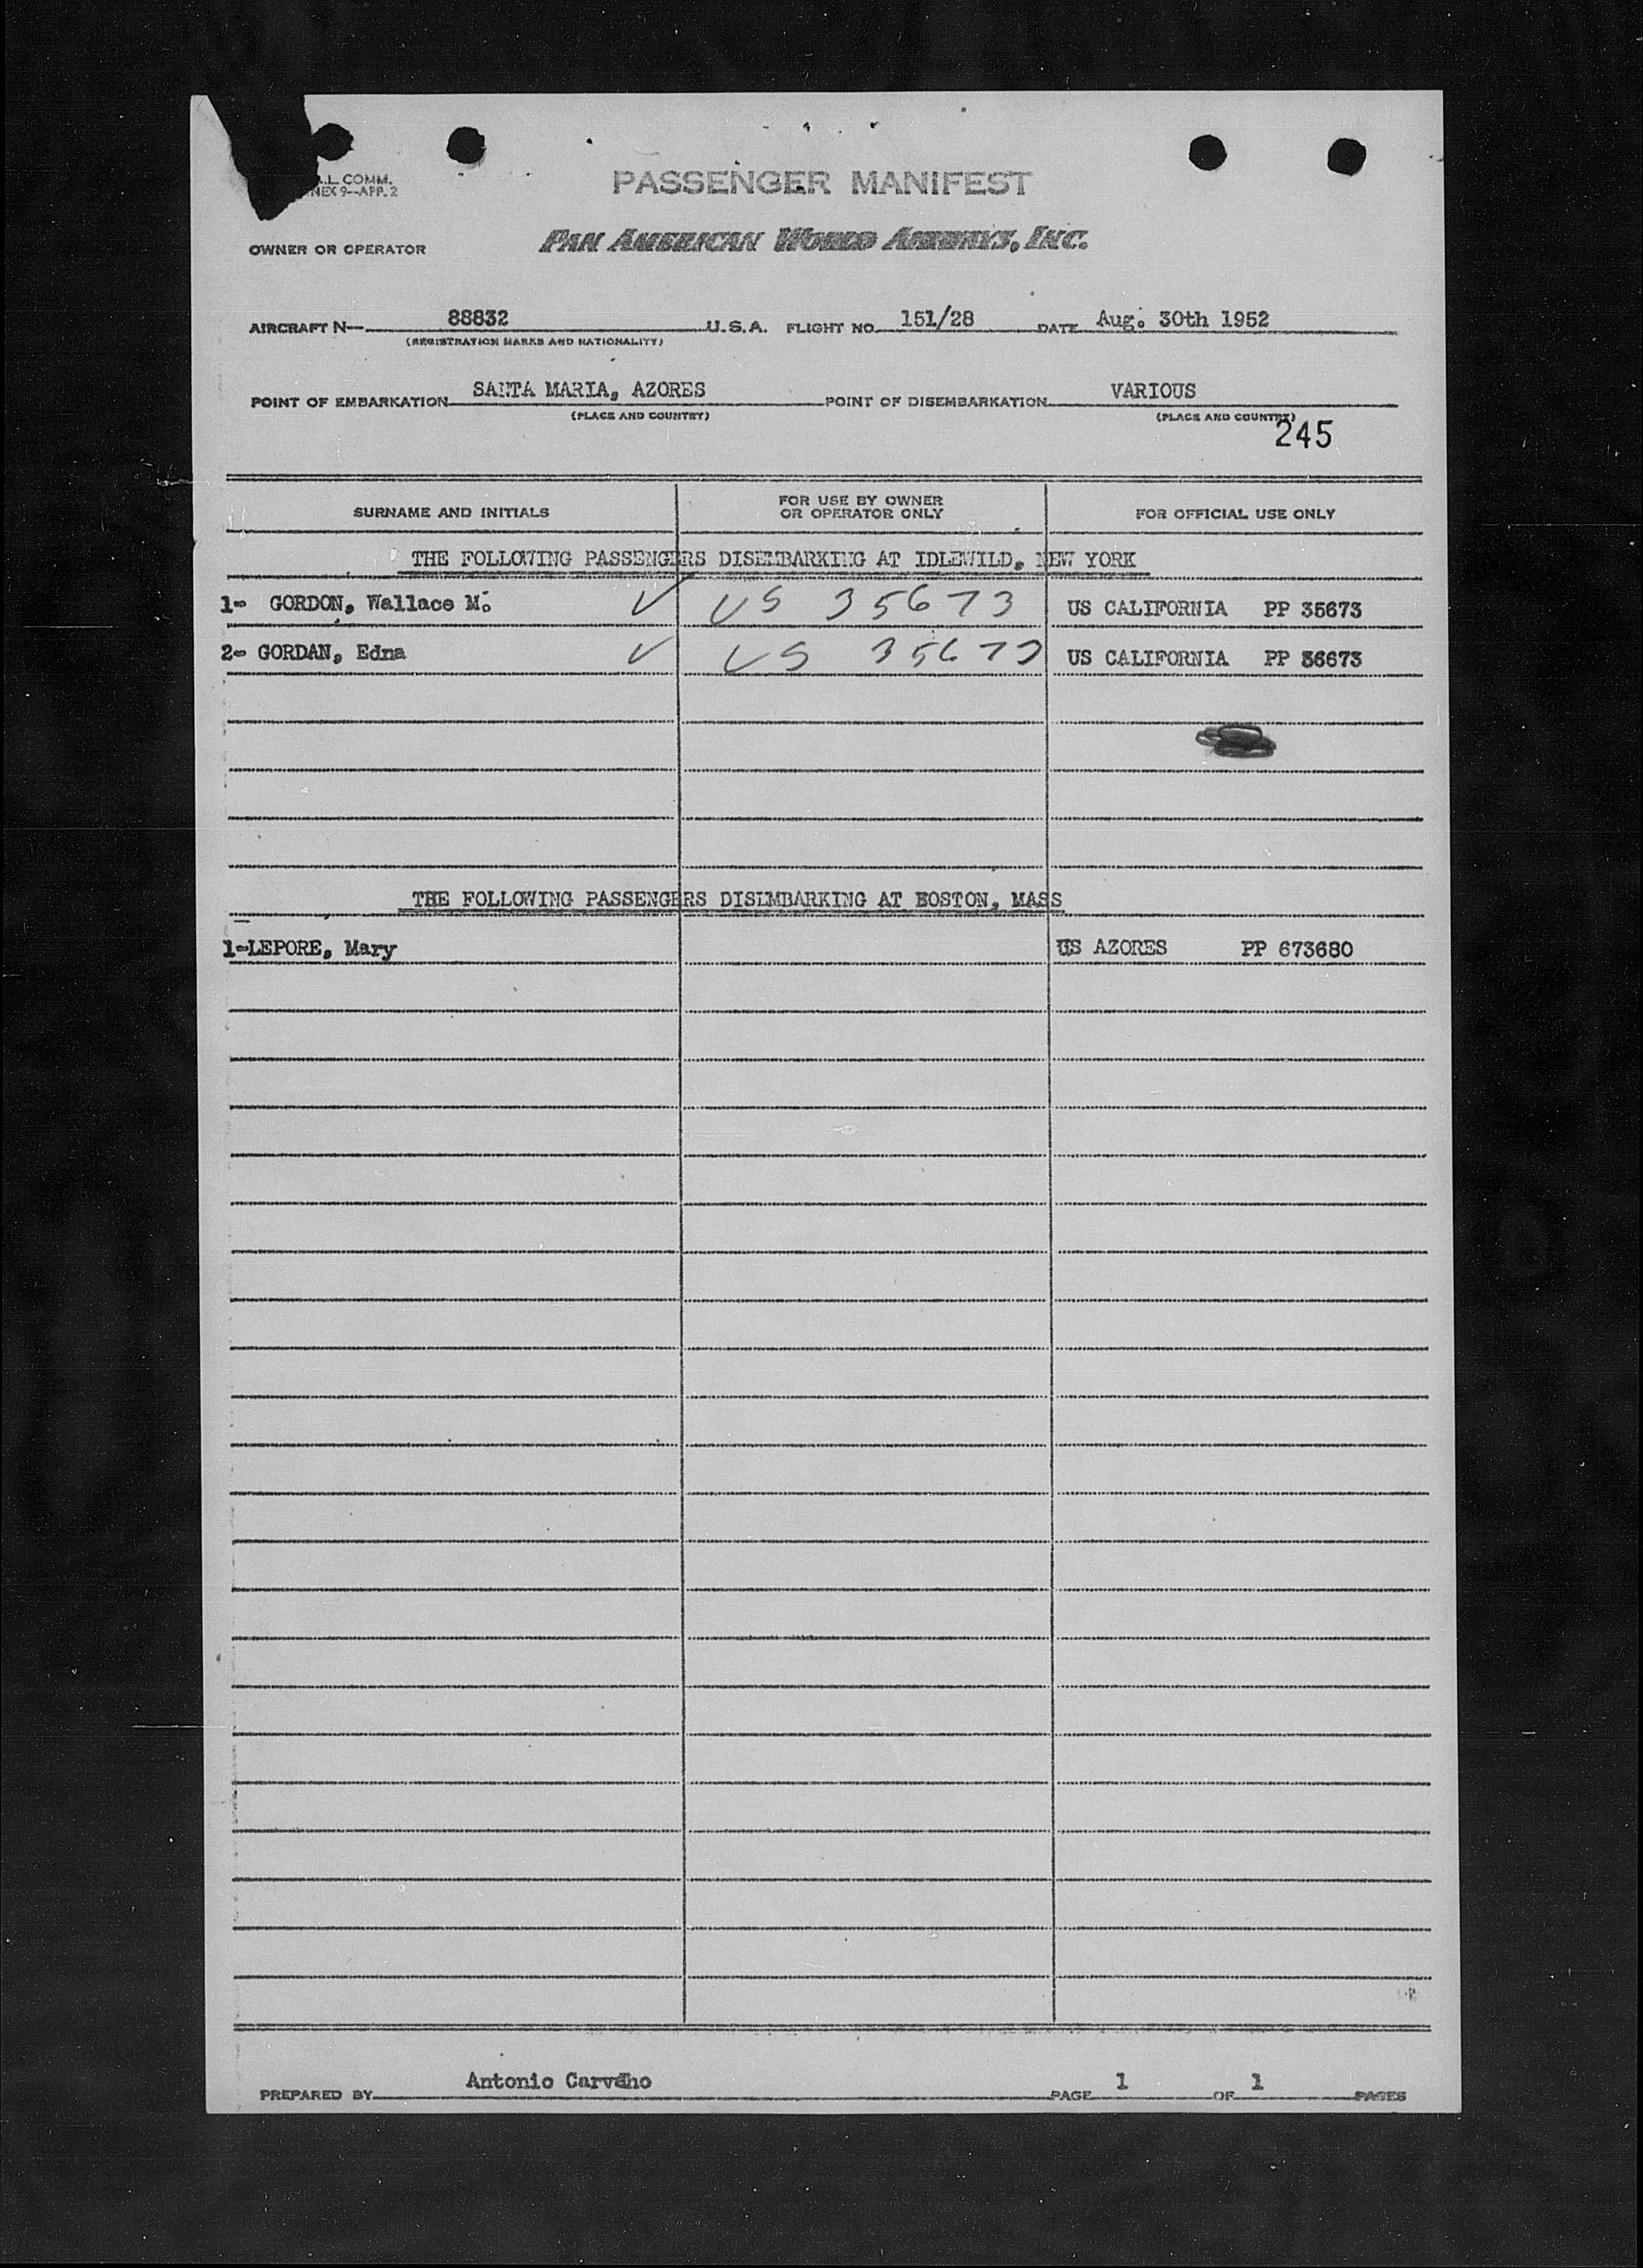 L COMM.
NEX 9—APP. 2
PASSENGER MANIFEST
OWNER OR OPERATOR PAN AMERICAN WORLD AIRWAYS, INC.
AIRCRAFT N— 88832 U.S.A. FLIGHT NO. 151/28 DATE Aug. 30th 1952
(REGISTRATION MARKS AND NATIONALITY)
POINT OF EMBARKATION SANTA MARIA, AZORES POINT OF DISEMBARKATION VARIOUS
(PLACE AND COUNTRY) (PLACE AND COUNTRY)
245
SURNAME AND INITIALS FOR USE BY OWNER OR OPERATOR ONLY FOR OFFICIAL USE ONLY
THE FOLLOWING PASSENGERS DISEMBARKING AT IDLEWILD, NEW YORK
1- GORDON, Wallace M. ✓ US 35673 US CALIFORNIA PP 35673
2- GORDAN, Edna ✓ US 35673 US CALIFORNIA PP 36673
THE FOLLOWING PASSENGERS DISEMBARKING AT BOSTON, MASS
1-LEPORE, Mary US AZORES PP 673680
PREPARED BY Antonio Carvalho PAGE 1 OF 1 PAGES